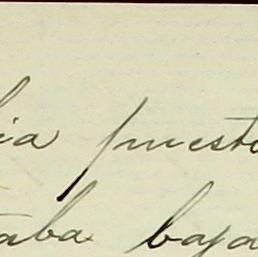 ia puesto
taba baja